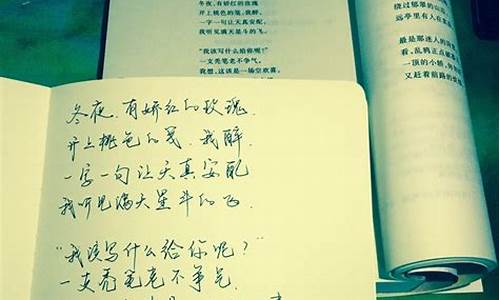 冬夜,有娇红的玫瑰
开上桃色的笺,我醉,
一字一句让天真安配,
我听见满天星斗的飞。
"我该写什么给你呢?"
一支秃笔老不争气,
我想,这该是一场空欢喜,
绕过郁翠的山
远亭里有人在
最是那迷人的
看,乱鸦正点破
一顶的小轿,
又赶着前路的
冬夜,有娇红的玫瑰
开上桃色的笺,我醉,
一字一句让天真安配
我听见满天星斗的飞.
"我该写什么给你呢?"
一支秃笔老不争气.